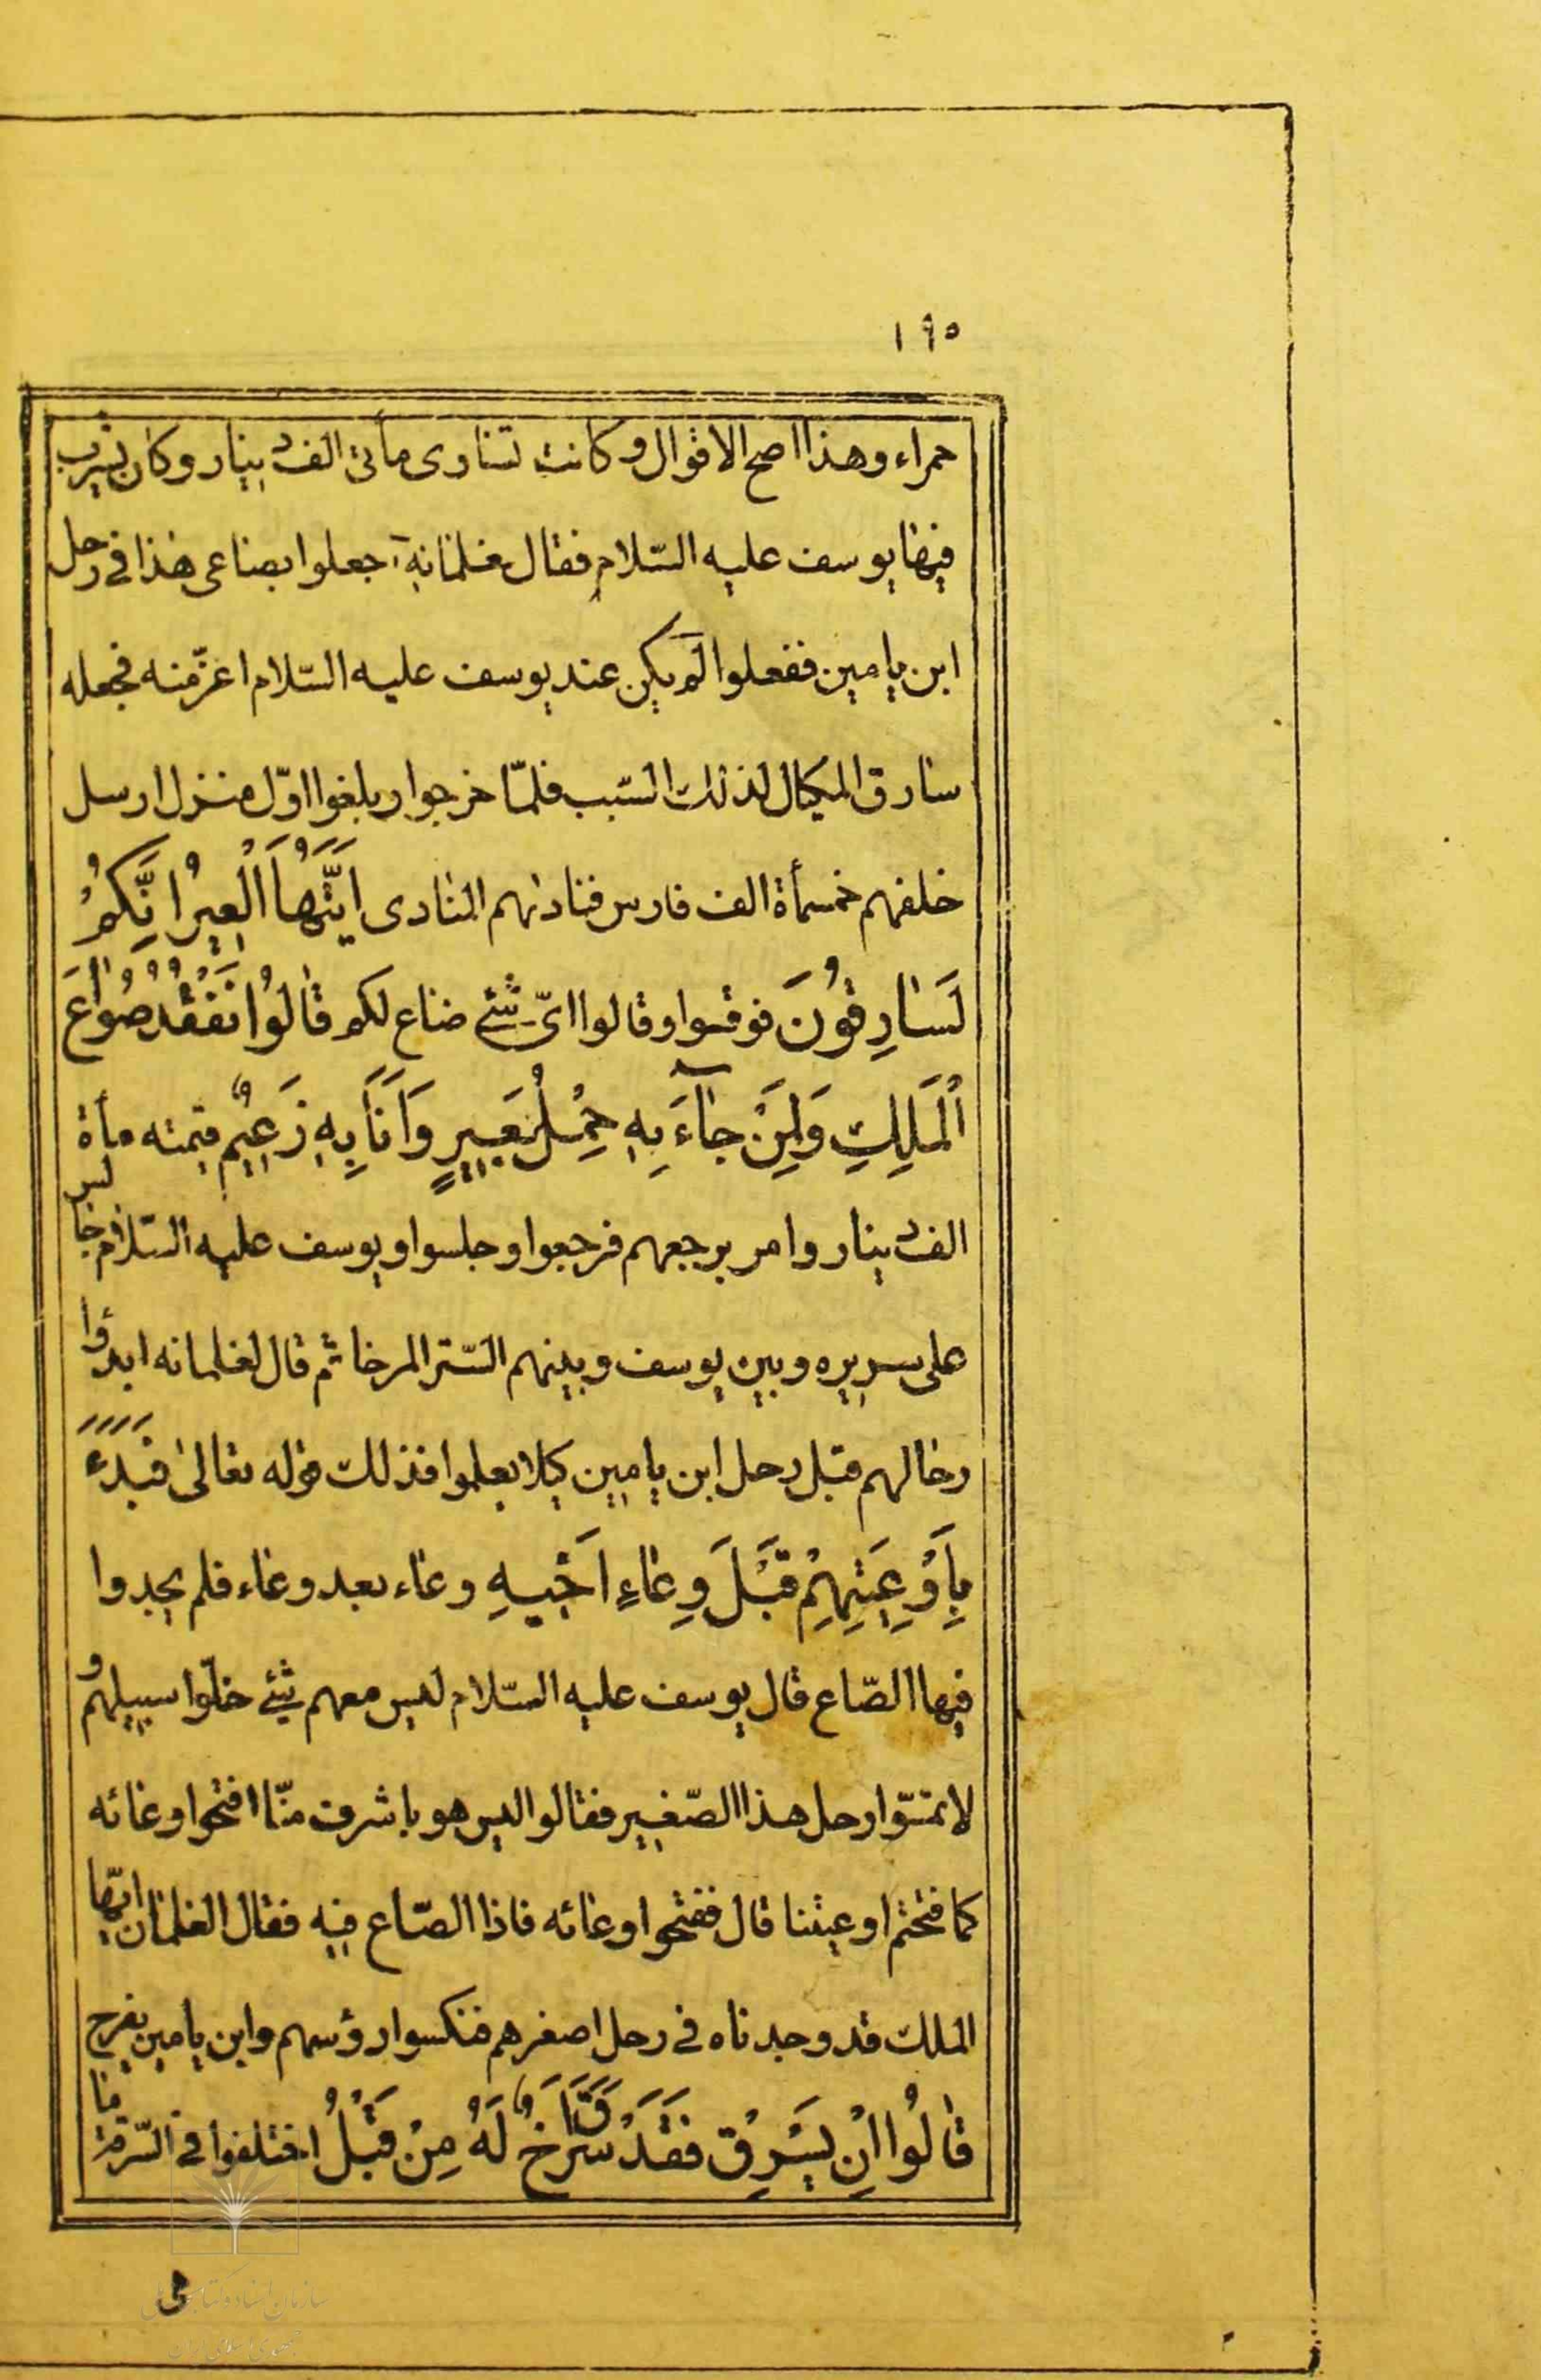 ۱۹۵
حمراء وهذا اصح الاقوال و كانت تساوى مأتى الف دينار و كان يشرب
فيها يوسف عليه السّلام فقال لغلمانه اجعلوا بصاعى هذا فى رحل
ابن يامين ففعلوا لم يكن عند يوسف عليه السّلام اعزّ منه فجعله
سارق المكيال لذلك السّبب فلمّا خرجوا و بلغوا اوّل منزل ارسل
خلفهم خمسمأة الف فارس فنادٰىهم المنادى اَيَّتُهَا الْعِيرُ اِنَّكُمْ
لَسٰارِقُونَ فوقفوا و قالوا اىّ شئ ضاع لكم قٰالُوا نَفْقِدُ صُوٰاعَ
الْمَلِكِ وَلِمَنْ جٰآءَ بِهِ حِمْلُ بَعِيرٍ وَاَنَا بِهِ زَعِيمٌ قيمته مأة
الف دينار و امر برجعهم فرجعوا و جلسوا و يوسف عليه السّلام جالس
على سريره و بين يوسف و بينهم السّتر المرخا ثم قال لغلمانه ابدؤا
رحالهم قبل رحل ابن يامين كيلا يعلموا فذلك قوله تعالىٰ فَبَدَءَ
بِاَوْعِيَتِهِمْ قَبْلَ وِعٰاءِ اَخٖيهِ وعاء بعد وعاء فلم يجدوا
فيها الصّاع قال يوسف عليه السّلام ليس معهم شئ خلّوا سبيلهم و
لا تمسّوا رحل هذا الصّغير فقالوا ليس هو باشرف منّا افتحوا وعائه
كما فتحتم اوعيتنا قال ففتحوا وعائه فاذا الصّاع فيه فقال الغلمان ايّها
الملك قد وجدناه فى رحل اصغرهم فنكسوا رؤسهم و ابن يامين يفرح
قٰالُوا اِنْ يَسْرِقْ فَقَدْ سَرَقَ اَخٌ لَهُ مِنْ قَبْلُ اختلفوا فى السّرقة ما